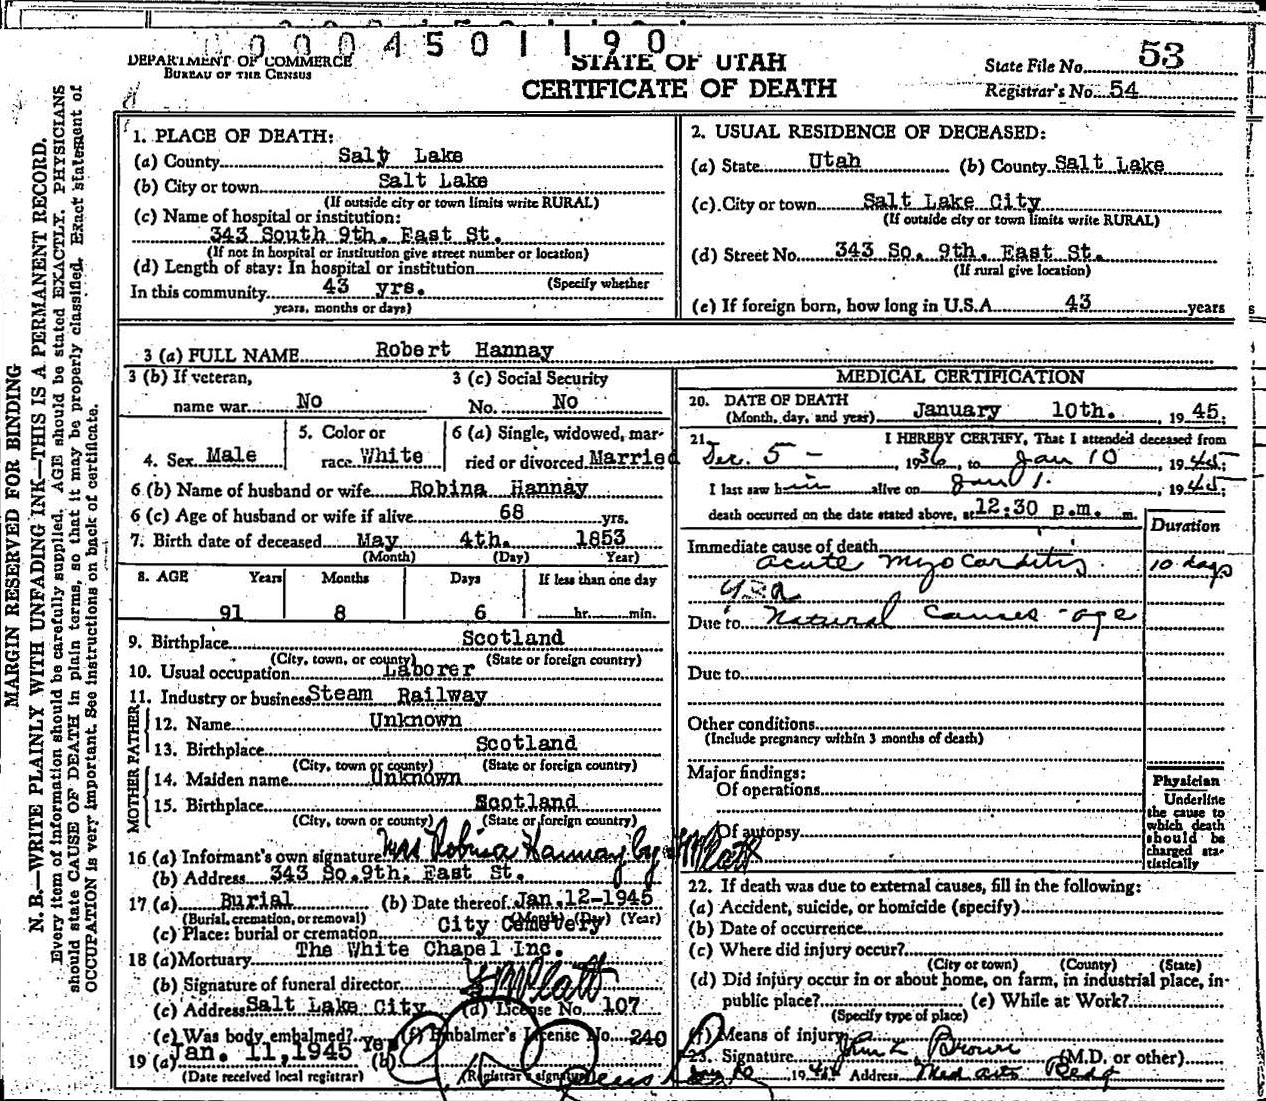 0 0 0 4 5 0 1 1 9 0
DEPARTMENT OF COMMERCE
BUREAU OF THE CENSUS
STATE OF UTAH
CERTIFICATE OF DEATH
State File No. 53
Registrar's No. 54
MARGIN RESERVED FOR BINDING
N. B.—WRITE PLAINLY WITH UNFADING INK—THIS IS A PERMANENT RECORD.
Every item of information should be carefully supplied. AGE should be stated EXACTLY. PHYSICIANS
should state CAUSE OF DEATH in plain terms, so that it may be properly classified. Exact statement of
OCCUPATION is very important. See instructions on back of certificate.
1. PLACE OF DEATH:
(a) County Salt Lake
(b) City or town Salt Lake
(If outside city or town limits write RURAL)
(c) Name of hospital or institution:
343 South 9th. East St.
(If not in hospital or institution give street number or location)
(d) Length of stay: In hospital or institution
(Specify whether
In this community 43 yrs.
years, months or days)
2. USUAL RESIDENCE OF DECEASED:
(a) State Utah (b) County Salt Lake
(c) City or town Salt Lake City
(If outside city or town limits write RURAL)
(d) Street No. 343 So. 9th. East St.
(If rural give location)
(e) If foreign born, how long in U.S.A. 43 years
3 (a) FULL NAME Robert Hannay
3 (b) If veteran,
name war No
3 (c) Social Security
No. No
4. Sex Male
5. Color or
race White
6 (a) Single, widowed, mar-
ried or divorced Married
6 (b) Name of husband or wife Robina Hannay
6 (c) Age of husband or wife if alive 68 yrs.
7. Birth date of deceased May 4th. 1853
(Month) (Day) Year)
8. AGE Years Months Days If less than one day
91 8 6 hr. min.
9. Birthplace Scotland
(City, town, or county) (State or foreign country)
10. Usual occupation Laborer
11. Industry or business Steam Railway
FATHER
12. Name Unknown
13. Birthplace Scotland
(City, town or county) (State or foreign country)
MOTHER
14. Maiden name Unknown
15. Birthplace Scotland
(City, town or county) (State or foreign country)
16 (a) Informant's own signature Mrs Robina Hannay by Platt
(b) Address 343 So.9th. East St.
17 (a) Burial (b) Date thereof Jan.12-1945
(Burial, cremation, or removal) (Month) (Day) (Year)
(c) Place: burial or cremation City Cemetery
18 (a) Mortuary The White Chapel Inc.
(b) Signature of funeral director Platt
(c) Address Salt Lake City (d) License No. 107
(e) Was body embalmed? Yes (f) Embalmer's License No. 240
19 (a) Jan. 11,1945 (b)
(Date received local registrar) (Registrar's signature)
MEDICAL CERTIFICATION
20. DATE OF DEATH
(Month, day, and year) January 10th. , 1945;
21. I HEREBY CERTIFY, That I attended deceased from
Dec. 5 - , 1936, to Jan 10 , 1945;
I last saw him alive on Jan 1. , 1945;
death occurred on the date stated above, at 12:30 p.m. m.
Duration
Immediate cause of death
acute myocarditis 10 days
Due to Natural causes - age
Due to
Other conditions
(Include pregnancy within 3 months of death)
Major findings:
Of operations
Of autopsy
Physician
Underline
the cause to
which death
should be
charged sta-
tistically
22. If death was due to external causes, fill in the following:
(a) Accident, suicide, or homicide (specify)
(b) Date of occurrence
(c) Where did injury occur?
(City or town) (County) (State)
(d) Did injury occur in or about home, on farm, in industrial place, in
public place? (e) While at Work?
(Specify type of place)
(f) Means of injury
23. Signature John L. Brown (M.D. or other)
Address Med arts Bldg